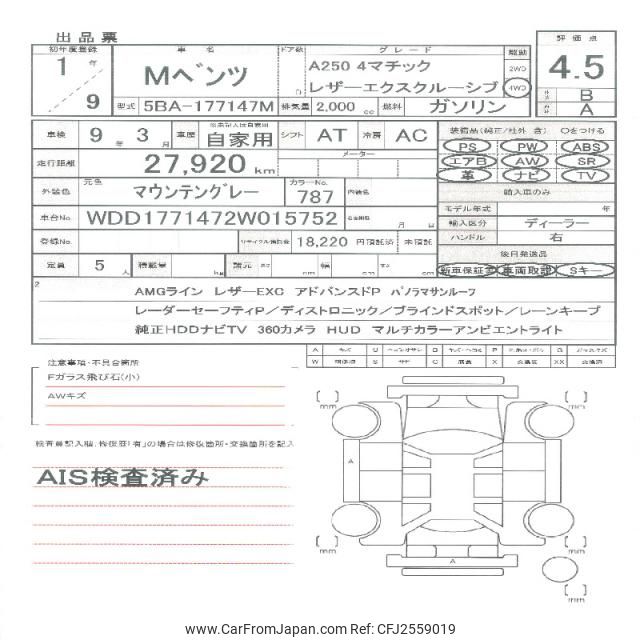 出品票
初年度登録
1 年 9
車名
Mベンツ
ドア数
D
グレード
A250 4マチック
レザーエクスクルーシブ
駆動
2WD
4WD
評価点
4.5
B
A
型式 5BA-177147M 排気量 2,000 cc 燃料 ガソリン
車検 9 年 3 月 車歴 自家用 シフト AT 冷房 AC
装備品(純正/社外 含) ○をつける
PS PW ABS
エアB AW SR
革 ナビ TV
走行距離 27,920 km
メーター
外装色 元色 マウンテングレー カラーNo. 787 内装色
輸入車のみ
モデル年式 年
車台No. WDD1771472W015752 月 日
輸入区分 ディーラー
ハンドル 右
登録No. リサイクル預託金 18,220 円預託済 未預託
後日発送品
新車保証書 車両取説 Sキー
定員 5 人 積載量 kg 諸元 長さ cm 幅 cm 高さ cm
2
AMGライン レザーEXC アドバンスドP パノラマサンルーフ
レーダーセーフティP/ディストロニック/ブラインドスポット/レーンキープ
純正HDDナビTV 360カメラ HUD マルチカラーアンビエントライト
注意事項・不具合箇所
Fガラス飛び石(小)
AWキズ
検査員記入欄、修復歴「有」の場合は修復箇所・交換箇所を記入
AIS検査済み
mm
mm
A
mm
mm
A
mm
www.CarFromJapan.com Ref: CFJ2559019